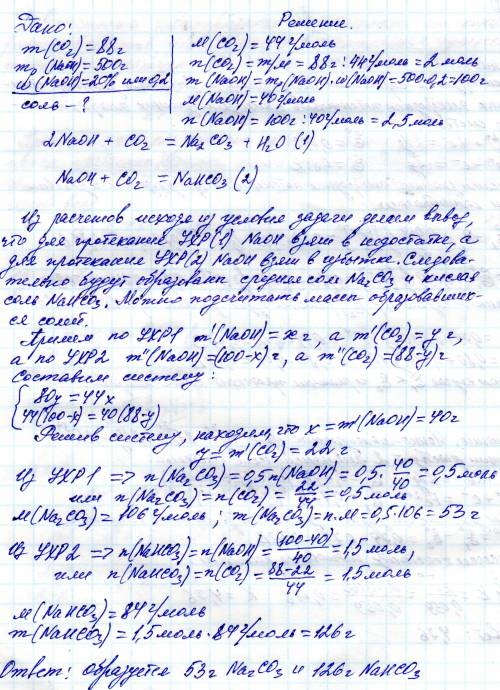 Дано:
m(CO₂)=88г
mₚ(NaOH)=500г
ω(NaOH)=20% или 0,2
соль - ?
Решение.
M(CO₂)=44г/моль
n(CO₂)=m/M=88г:44г/моль=2моль
m(NaOH)=mₚ(NaOH)·ω(NaOH)=500·0,2=100г
M(NaOH)=40г/моль
n(NaOH)=100г:40г/моль=2,5моль
2NaOH + CO₂ = Na₂CO₃ + H₂O (1)
NaOH + CO₂ = NaHCO₃ (2)
Из расчетов исходя из условия задачи делаем вывод,
что для протекания УХР(1) NaOH взят в недостатке, а
для протекания УХР(2) NaOH взят в избытке. Следова-
тельно будут образованы средняя соль Na₂CO₃ и кислая
соль NaHCO₃. Можно подсчитать массы образовавших-
ся солей.
Примем по УХР1 m'(NaOH)=xг, а m'(CO₂)=y г,
а по УХР2 m''(NaOH)=(100-x)г, а m''(CO₂)=(88-y)г
Составим систему:
{80y=44x
44(100-x)=40(88-y)
Решив систему, находим, что x=m'(NaOH)=40г
y=m'(CO₂)=22г
Из УХР1 => n(Na₂CO₃)=0,5n(NaOH)=0,5·40/40=0,5моль
или n(Na₂CO₃)=n(CO₂)=22/44=0,5моль
M(Na₂CO₃)=106г/моль; m(Na₂CO₃)=n·M=0,5·106=53г
Из УХР2 => n(NaHCO₃)=n(NaOH)=(100-40)/40=1,5моль,
или n(NaHCO₃)=n(CO₂)=88-22/44=1,5моль
M(NaHCO₃)=84г/моль
m(NaHCO₃)=1,5моль·84г/моль=126г
Ответ: образуется 53г Na₂CO₃ и 126г NaHCO₃